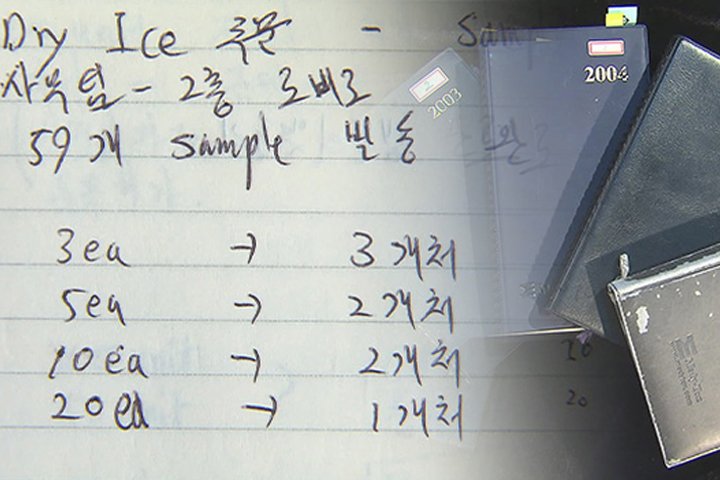 Dry Ice 주문 - Sam
사육팀 - 2층 로비로
59개 sample 발송
3ea → 3개처
5ea → 2개처
10ea → 2개처
20ea → 1개처
2003
2004
20